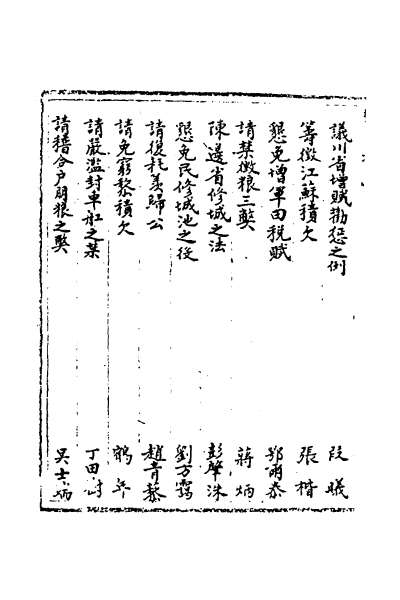 議川省增賦勸懲之例 段曦
籌徵江蘇積欠 張楷
懇免增軍田税賦 鄂爾泰
請禁徵粮三獘 蔣炳
陳邊省修城之法 彭肇洙
懇免民修城池之役 劉方靄
請復耗羡歸公 趙青藜
請免窮黎積欠 鶴年
請嚴濫封車船之禁 丁田澍
請穭合户朋粮之獘 吴士